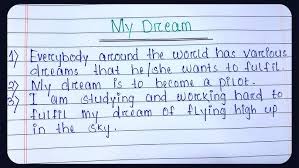 My Dream
1) Everybody around the world has various
dreams that he/she wants to fulfil.
2) My dream is to become a pilot.
3) I am studying and working hard to
fulfil my dream of flying high up
in the sky.